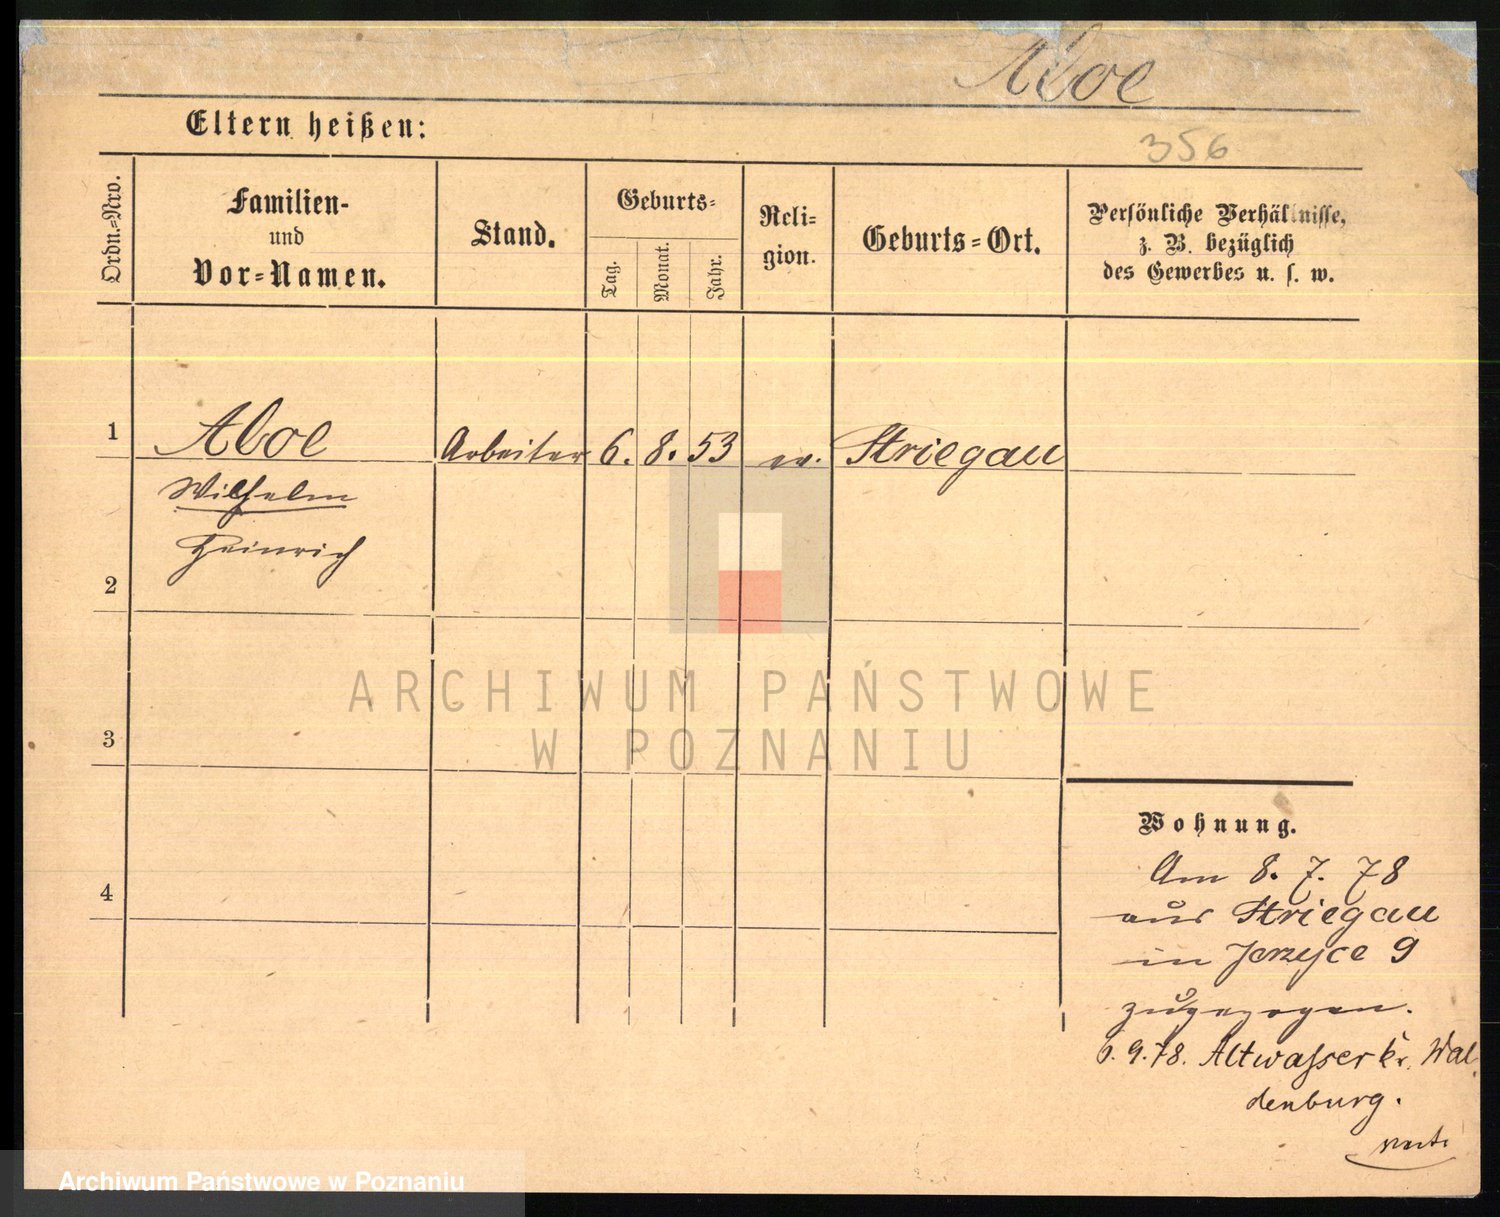 Aloe
Eltern heißen:
356
Ordn.=Nro.
Familien-
und
Vor=Namen.
Stand.
Geburts=
Tag.
Monat.
Jahr.
Reli=
gion.
Geburts=Ort.
Persönliche Verhältnisse,
z. B. bezüglich
des Gewerbes u. s. w.
1
Aloe
Arbeiter
6.
8.
53
ev.
Striegau
Wilhelm
Heinrich
2
3
4
ARCHIWUM PAŃSTWOWE
W POZNANIU
Wohnung.
Am 8. 7. 78
aus Striegau
in Jerzyce 9
zugezogen.
6.9.78. Altwasser Kr. Wal
denburg.
Archiwum Państwowe w Poznaniu